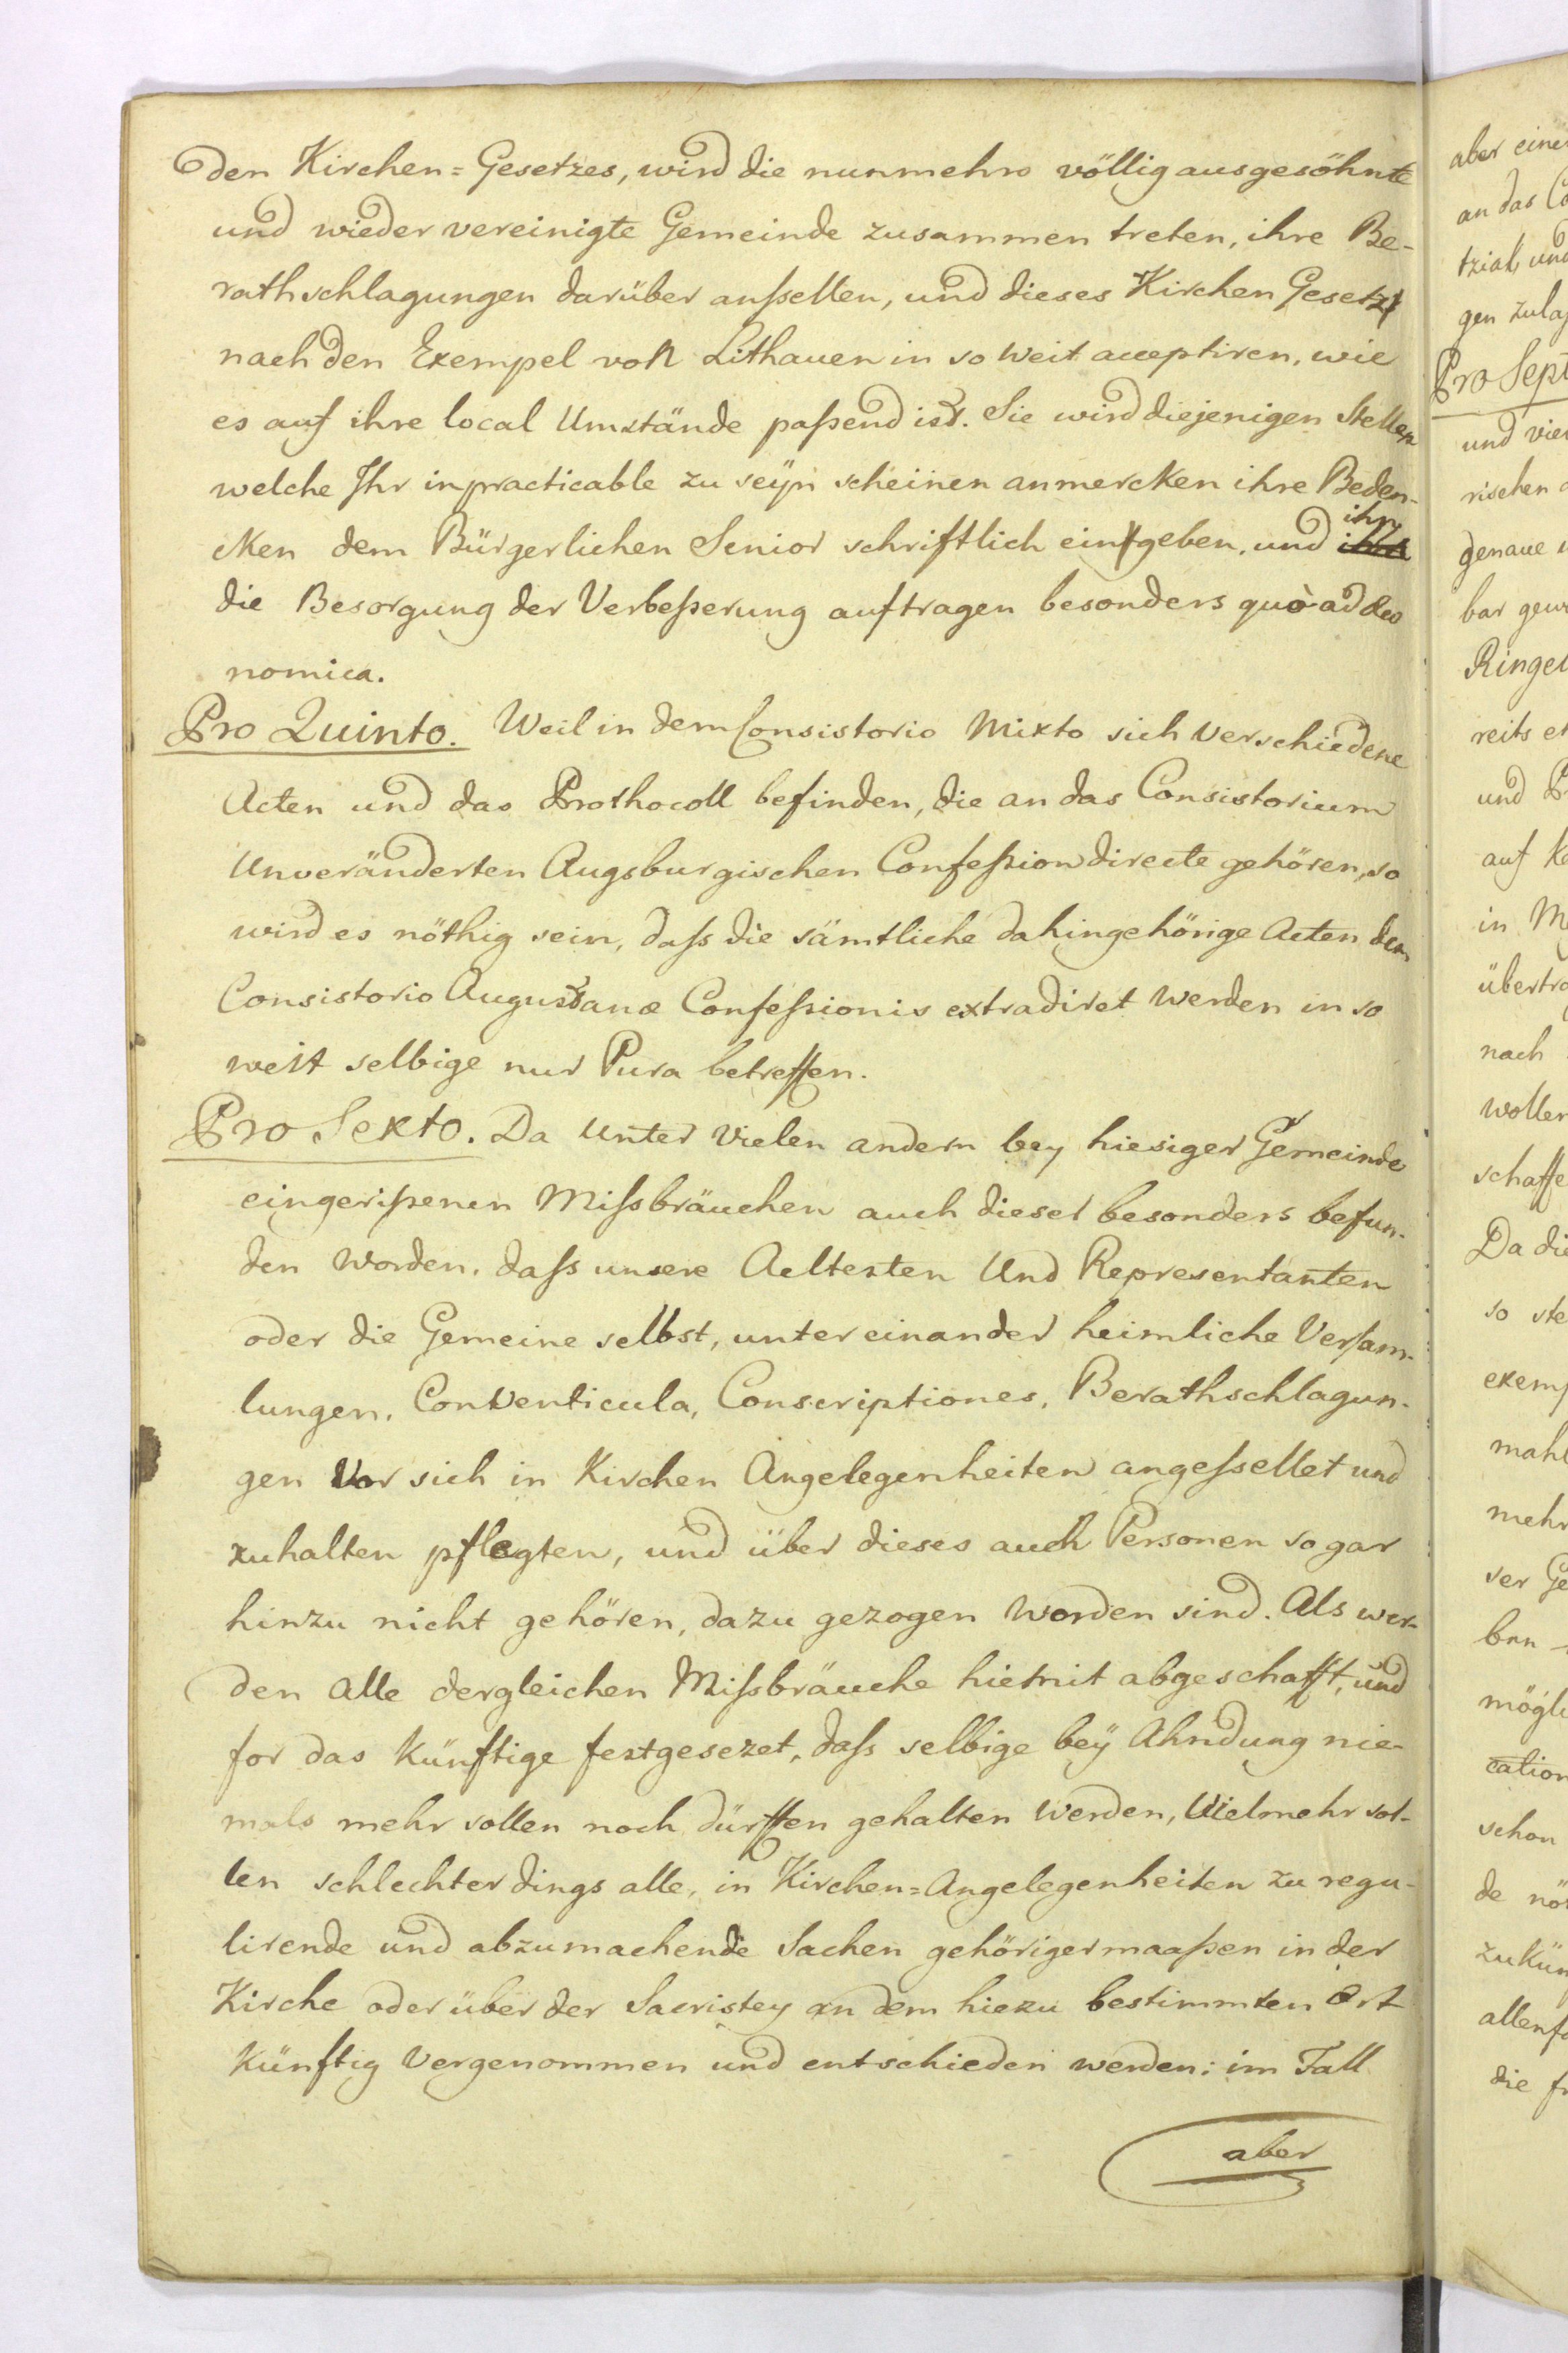 den Kirchen=Gesetzes, wird die nunmehro völlig ausgesöhnte
und wieder vereinigte Gemeinde zusammen treten, ihre Be-
rathschlagungen darüber anstellen, und dieses Kirchen Gesetz
nach den Exempel von Lithauen in so weit acceptiren, wie
es auf ihre local Umstände paßend ist. Sie wird diejenigen Stellen
welche Ihr inpracticable zu seÿn scheinen anmercken ihre Beden-
cken dem Bürgerlichen Senior schriftlich eingeben, und ihm
die Besorgung der Verbeßerung auftragen besonders quò ad oeco
nomica.
Pro Quinto. Weil in dem Consistorio Mixto sich verschiedene
Acten und das Prothocoll befinden, die an das Consistorium
Unveränderten Augsburgischen Confeßion directe gehören, so
wird es nöthig sein, daß die sämtliche dahingehörige Acten dem
Consistorio Augustanæ Confeßionis extradiret werden in so
weit selbige nur Pura betreffen.
Pro Sexto. Da unter vielen andern bey hiesiger Gemeinde
eingerißenen Mißbräuchen auch dieses besonders befun-
den worden, daß unsere Aeltesten Und Representanten
oder die Gemeine selbst, unter einander heimliche Versam-
lungen, Conventicula, Conscriptiones, Berathschlagun-
gen Vor sich in Kirchen Angelegenheiten angestellet und
zuhalten pflegten, und über dieses auch Personen so gar
hinzu nicht gehören, dazu gezogen worden sind. Als wer-
den alle dergleichen Mißbräuche hiemit abgeschafft, und
for das künftige festgesezet, daß selbige beÿ Ahndung nie-
mals mehr sollen noch dürffen gehalten werden, Vielmehr sol-
len schlechterdings alle, in Kirchen=Angelegenheiten zu regu-
lirende und abzumachende Sachen gehörigermaaßen in der
Kirche oder über der Sacristey an dem hiezu bestimmten Ort
künftig vergenommen und entschieden werden: im Fall
aber
aber eine
an das Co
tzial, und
gen zulaß
Pro Sept
und vie
rischen
genaue
bar gew
Ringel
reits
und
auf
in
übertra
nach
wollen
schaffe
Da die
so ste
exemp
mahl
mehr
ser Ge
ben
mögli
cation
schon
de nö
zukün
allenfa
die